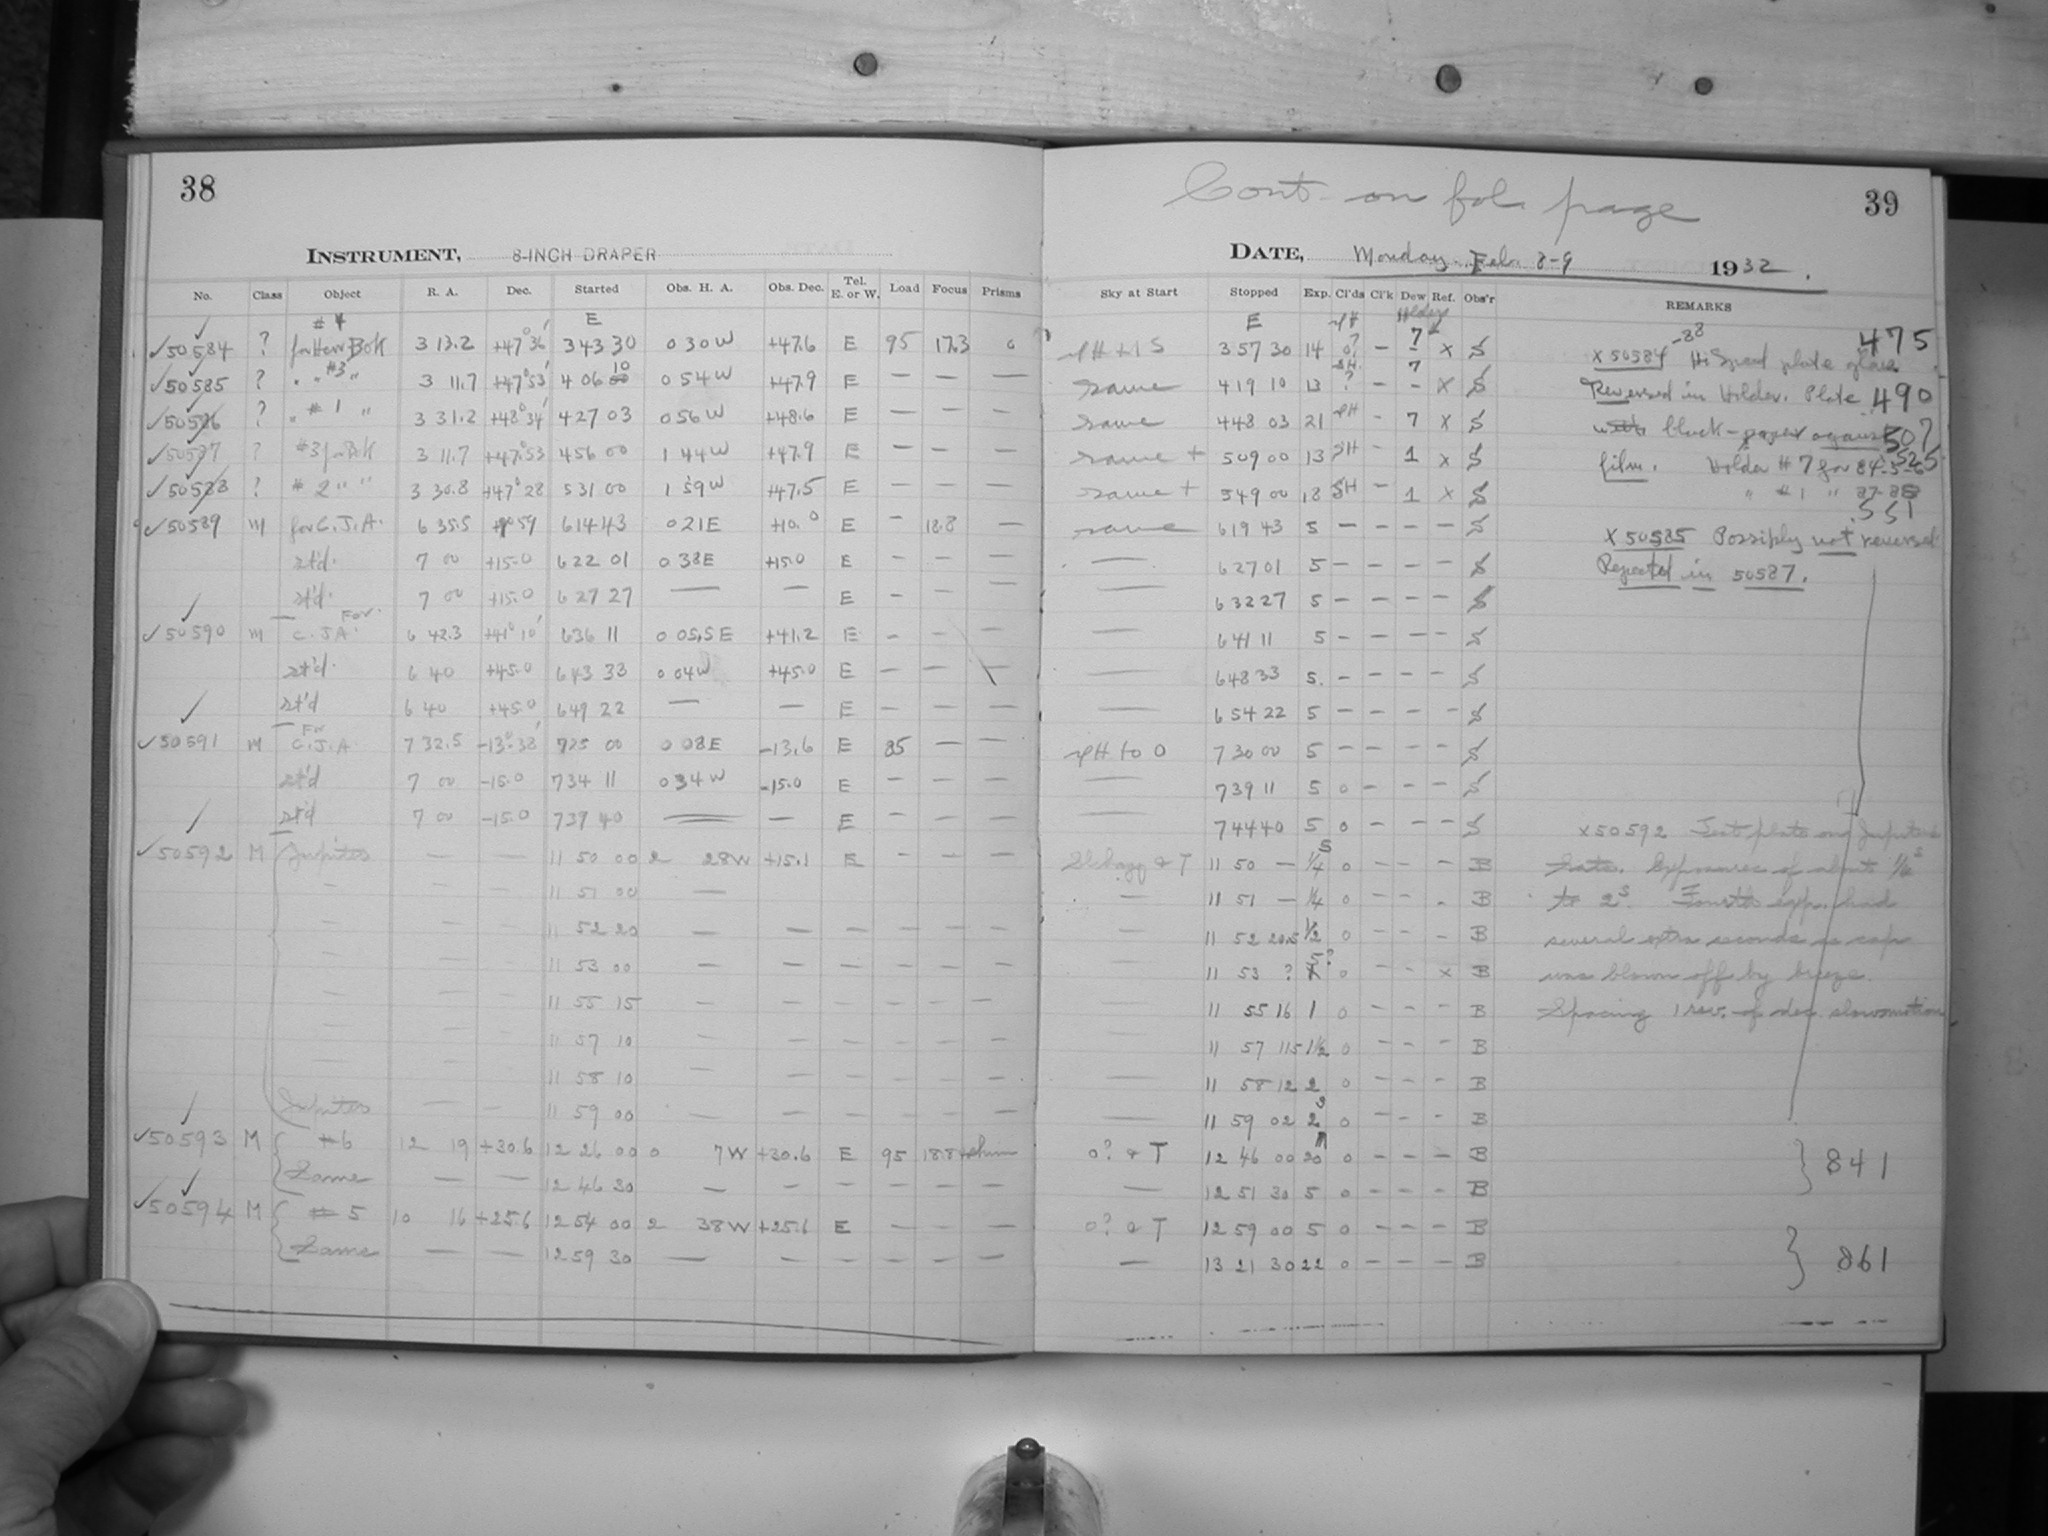 38
INSTRUMENT, 8-INCH DRAPER
No. Class Object R. A. Dec. Started Obs. H. A. Obs. Dec. Tel. E. or W. Load Focus Prisms
E
50584 ? #4 for Herr Bok 3 13.2 +47°36' 3 43 30 0 30 W +47.6 E 95 17.3 0
50585 ? " " #3 " 3 11.7 +47°53' 4 06 10 0 54 W +47.9 E — — —
50586 ? " #1 " 3 31.2 +48°34' 4 27 03 0 56 W +48.6 E — — —
50587 ? #3 for Bok 3 11.7 +47°53 4 56 00 1 44 W +47.9 E — — —
50588 ? #2 " " 3 30.8 +47°28 5 31 00 1 59 W +47.5 E — — —
50589 M for C.J.A. 6 35.5 59 6 14 43 0 21 E +10.0 E — 18.8 —
st'd. 7 00 +15.0 6 22 01 0 38 E +15.0 E — — —
st'd. 7 00 +15.0 6 27 27 — — E — — —
50590 M For C.J.A. 6 42.3 +41°10' 6 36 11 0 05.5 E +41.2 E — — —
st'd. 6 40 +45.0 6 43 33 0 04 W +45.0 E — — —
st'd 6 40 +45.0 6 49 22 — — E — — —
50591 M For C.J.A. 7 32.5 -13°38' 7 25 00 0 08 E -13.6 E 85 — —
st'd 7 00 -15.0 7 34 11 0 34 W -15.0 E — — —
st'd 7 00 -15.0 7 39 40 — — E
50592 M Jupiter — — 11 50 00 2 28 W +15.1 E — — —
— — 11 51 00 —
— — 11 52 20 — — — — — —
— — 11 53 00 — — — — — —
— — 11 55 15 — — — — — —
— — 11 57 10 — — — — — —
— — 11 58 10 — — — — — —
Jupiter — — 11 59 00 — — — — — —
50593 M #6 12 19 +30.6 12 26 00 0 7 W +30.6 E 95 18.8
Same — — 12 46 30 — — — — — —
50594 M #5 10 16 +25.6 12 54 00 2 38 W +25.6 E — — —
Same — — 12 59 30 — — — — — —
Cont. on fol. page
39
DATE, Monday Feb. 8-9 1932.
Sky at Start Stopped Exp. Cl'ds Cl'k Dew Ref. Obs'r REMARKS
E Holder
3 57 30 14 ? — 7 x S
same 4 19 10 13 ? — - x S
same 4 48 03 21 — 7 x S
same + 5 09 00 13 SH — 1 x S
same + 5 49 00 18 SH — 1 x S
same 6 19 43 5 — — — — S
— 6 27 01 5 — — — — S
6 32 27 5 — — — — S
— 6 41 11 5 — — — — S
— 6 48 33 5. — — — — S
— 6 54 22 5 — — — — S
7 30 00 5 — — — — S
— 7 39 11 5 0 — — — S
— 7 44 40 5 0 — — — S
11 50 — 1/4 s 0 — — — B
— 11 51 — 1/4 0 — — - B
— 11 52 20.5 1/2 0 — — — B
11 53 ? 5? 0 — — x B
11 55 16 1 0 — — — B
11 57 11.5 1 1/2 0 — — — B
— 11 58 12 2 0 — — — B
— 11 59 02 2 s 0 — — — B
0? & T 12 46 00 20 m 0 — — — B
— 12 51 30 5 0 — — — B
0? & T 12 59 00 5 0 — — — B
— 13 21 30 22 0 — — — B
x 50584 -88 Hi Speed plate glass 475
Reversed in Holder. Plate 490
with black-paper against 507
film. Holder #7 for 84-5-6 525
" #1 " 87-88
551
x 50585 Possibly not reversed
Repeated in 50587.
x 50592 Test plate on Jupiter
Exposures of about 1/4 s
to 2 s. Fourth exp. had
several extra seconds as cap
was blown off by breeze.
Spacing 1 rev. of dec. slow motion
841
861